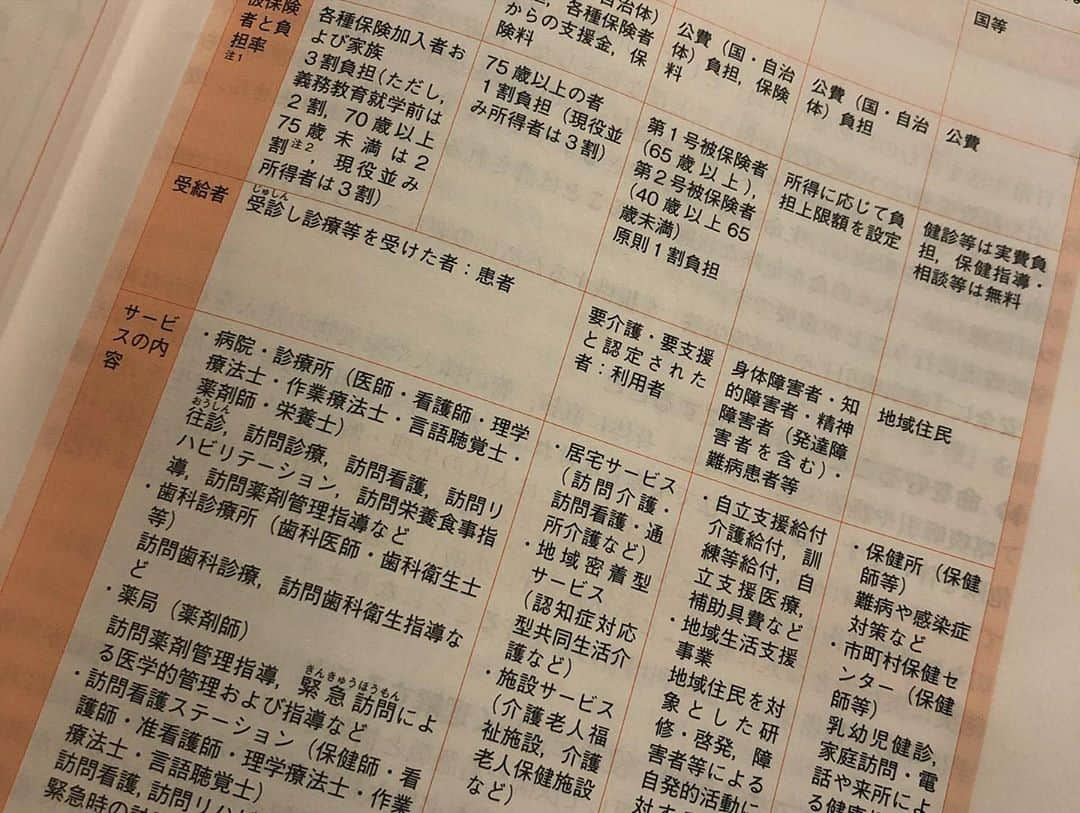 被保険
者と負
担率
注1
各種保険加入者お
よび家族
3割負担(ただし,
義務教育就学前は
2割, 70歳以上
75歳未満は2
割注2, 現役並み
所得者は3割)
自治体)
各種保険者
からの支援金, 保
険料
75歳以上の者
1割負担(現役並
み所得者は3割)
公費(国・自治
体)負担, 保険
料
第1号被保険者
(65歳以上),
第2号被保険者
(40歳以上65
歳未満)
原則1割負担
公費(国・自治
体)負担
所得に応じて負
担上限額を設定
国等
公費
健診等は実費負
担, 保健指導・
相談等は無料
受給者
じゅしん
受診し診療等を受けた者:患者
要介護・要支援
と認定された
者:利用者
身体障害者・知
的障害者・精神
障害者(発達障
害者を含む)・
難病患者等
地域住民
サービ
スの内
容
・病院・診療所(医師・看護師・理学
療法士・作業療法士・言語聴覚士・
薬剤師・栄養士)
おうしん
往診, 訪問診療, 訪問看護, 訪問リ
ハビリテーション, 訪問栄養食事指
導, 訪問薬剤管理指導など
・歯科診療所(歯科医師・歯科衛生士
等)
訪問歯科診療, 訪問歯科衛生指導な
ど
・薬局(薬剤師)
きんきゅうほうもん
訪問薬剤管理指導, 緊急訪問によ
る医学的管理および指導など
・訪問看護ステーション(保健師・看
護師・准看護師・理学療法士・作業
療法士・言語聴覚士)
訪問看護, 訪問リハビ
緊急時の訪
・居宅サービス
(訪問介護・
訪問看護・通
所介護など)
・地域密着型
サービス
(認知症対応
型共同生活介
護など)
・施設サービス
(介護老人福
祉施設, 介護
老人保健施設
など)
・自立支援給付
介護給付, 訓
練等給付, 自
立支援医療,
補助具費など
・地域生活支援
事業
地域住民を対
象とした研
修・啓発, 障
害者等による
自発的活動に
対する
・保健所(保健
師等)
難病や感染症
対策など
・市町村保健セ
ンター(保健
師等)
乳幼児健診,
家庭訪問・電
話や来所によ
る健康